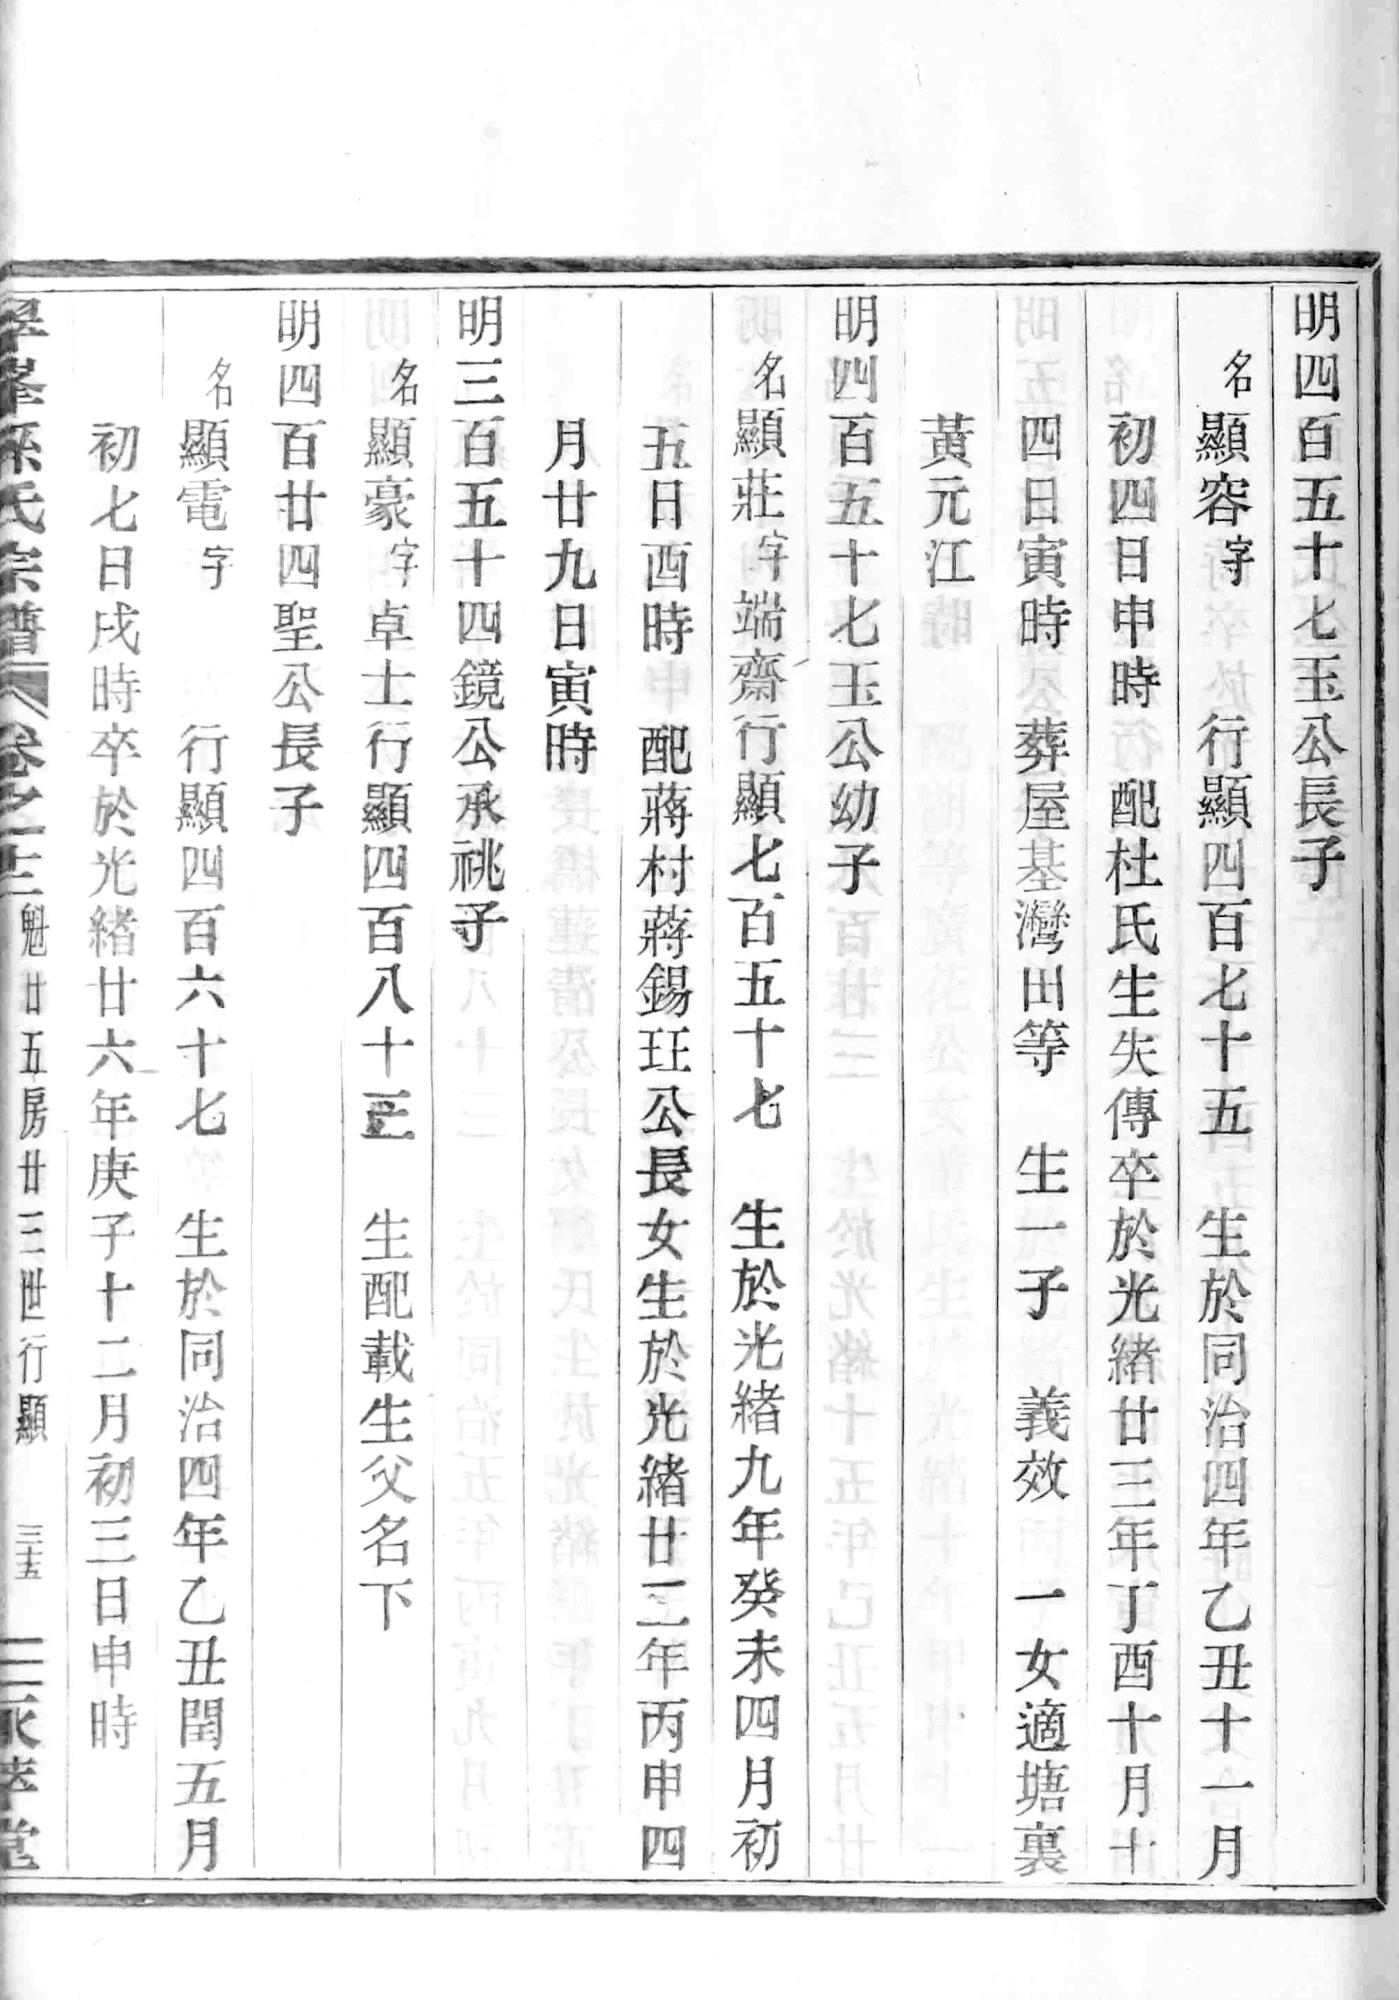 明四百五十七玉公長子
名顯容字 行顯四百七十五 生於同治四年乙丑十一月
初四日申時 配杜氏生失傳卒於光緒廿三年丁酉十月十
四日寅時 葬屋基灣田等 生一子 義效 一女適塘裏
黃元江
明四百五十七玉公幼子
名顯莊字端齋行顯七百五十七 生於光緒九年癸未四月初
五日酉時 配蔣村蔣錫玨公長女生於光緒廿二年丙申四
月廿九日寅時
明三百五十四鏡公承祧子
名顯豪字卓士行顯四百八十三 生配載生父名下
明四百廿四聖公長子
名顯電字 行顯四百六十七 生於同治四年乙丑閏五月
初七日戌時卒於光緒廿六年庚子十二月初三日申時
氏宗譜 卷之十三 魁廿五房廿三世行顯 三五 永孝堂